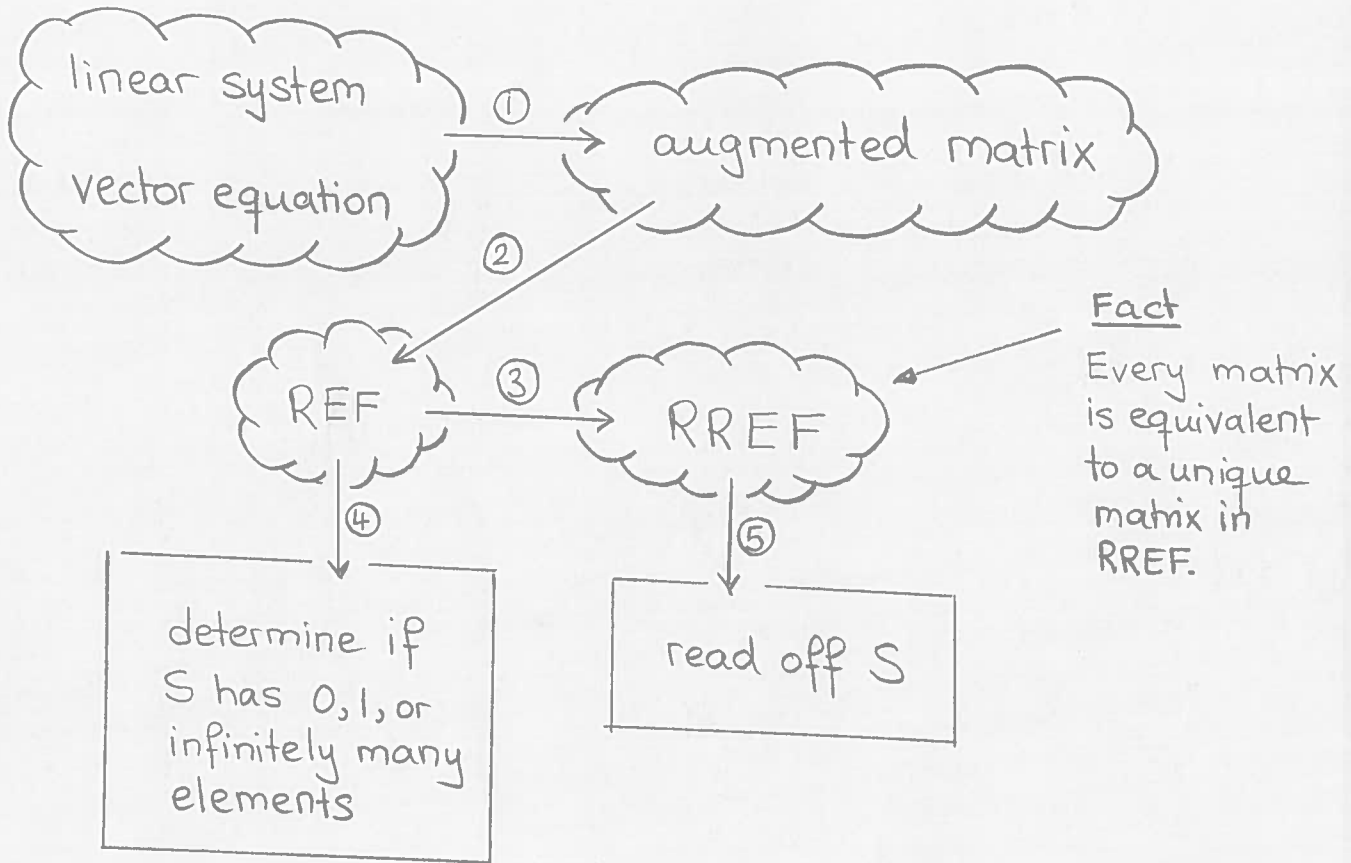 linear system
vector equation
①
augmented matrix
②
Fact
Every matrix
is equivalent
to a unique
matrix in
RREF.
REF
③
RREF
④
⑤
determine if
S has 0, 1, or
infinitely many
elements
read off S